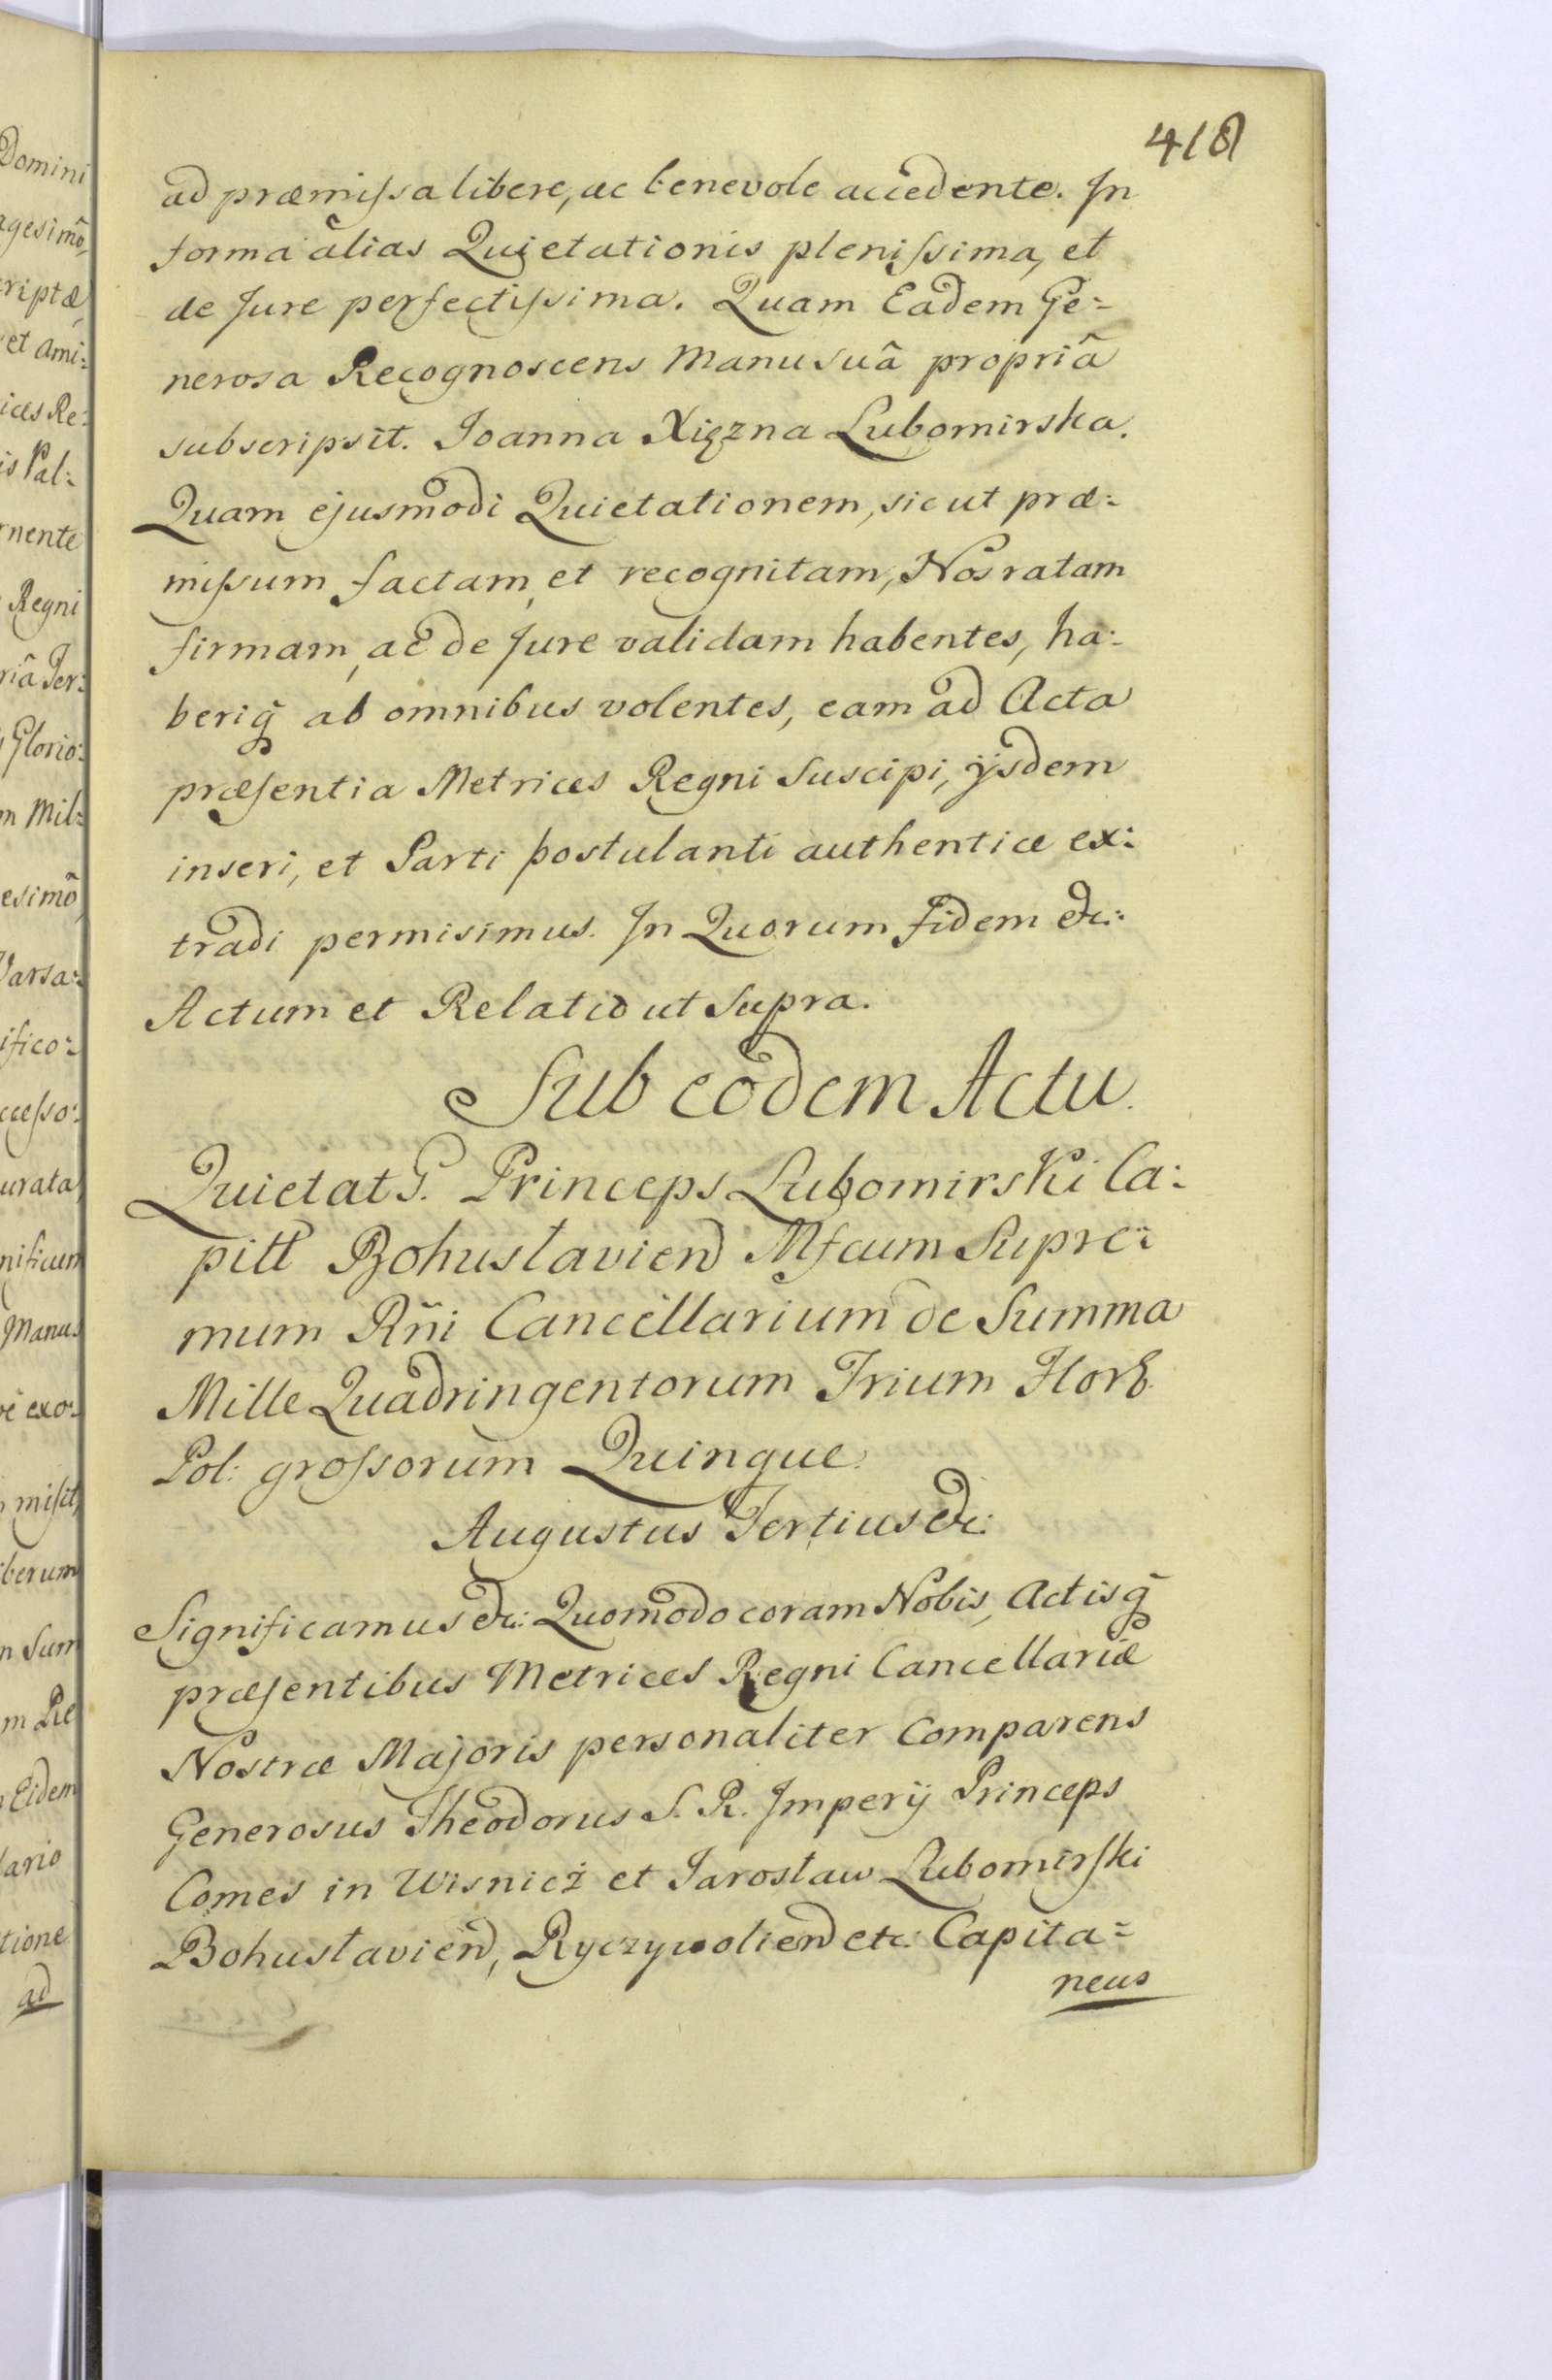 418
ad præmissa libere, ac benevole accedente. In
forma alias Quietationis plenissima, et
de Jure perfectissima. Quam Eadem Ge=
nerosa Recognoscens Manu suâ propriâ
subscripsit. Joanna Xięzna Lubomirska.
Quam ejusmodi Quietationem, sicut præ=
missum factam, et recognitam, Nos ratam
firmam, ac de Jure validam habentes, ha=
beriq̃ ab omnibus volentes, eam ad Acta
præsentia Metrices Regni Suscipi, ijsdem
inseri, et Parti postulanti authentice ex=
tradi permisimus. In Quorum fidem &c:
Actum et Relatio ut Supra.
Sub eodem Actu.
Quietat G. Princeps Lubomirski Ca=
pitt Bohuslavien Mfcum Supre=
mum Rñi Cancellarium de Summa
Mille Quadringentorum Trium Flor.
Pol: grossorum Quinque.
Augustus Tertius &c:
Significamus &c: Quomodo coram Nobis, Actisq̃
præsentibus Metrices Regni Cancellariæ
Nostræ Majoris personaliter Comparens
Generosus Theodorus S. R. Imperij Princeps
Comes in Wisnicż et Jarosław Lubomirski
Bohuslavien, Ryczywolien etc: Capita=
neus
Domini
agesimô,
criptæ,
et Ami=
ices Re=
is Pal=
rnente
Regni
riâ Ter=
Glorio=
m Mil=
esimô,
Varsa=
ifico=
ccesso=
urata,
nificum
Manus
exo=
misit,
berum
n Sum
m Re
Eidem
lario
tione
ad